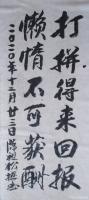 打拼得来回报
懒惰不可获酬
二〇二〇年十二月廿三日